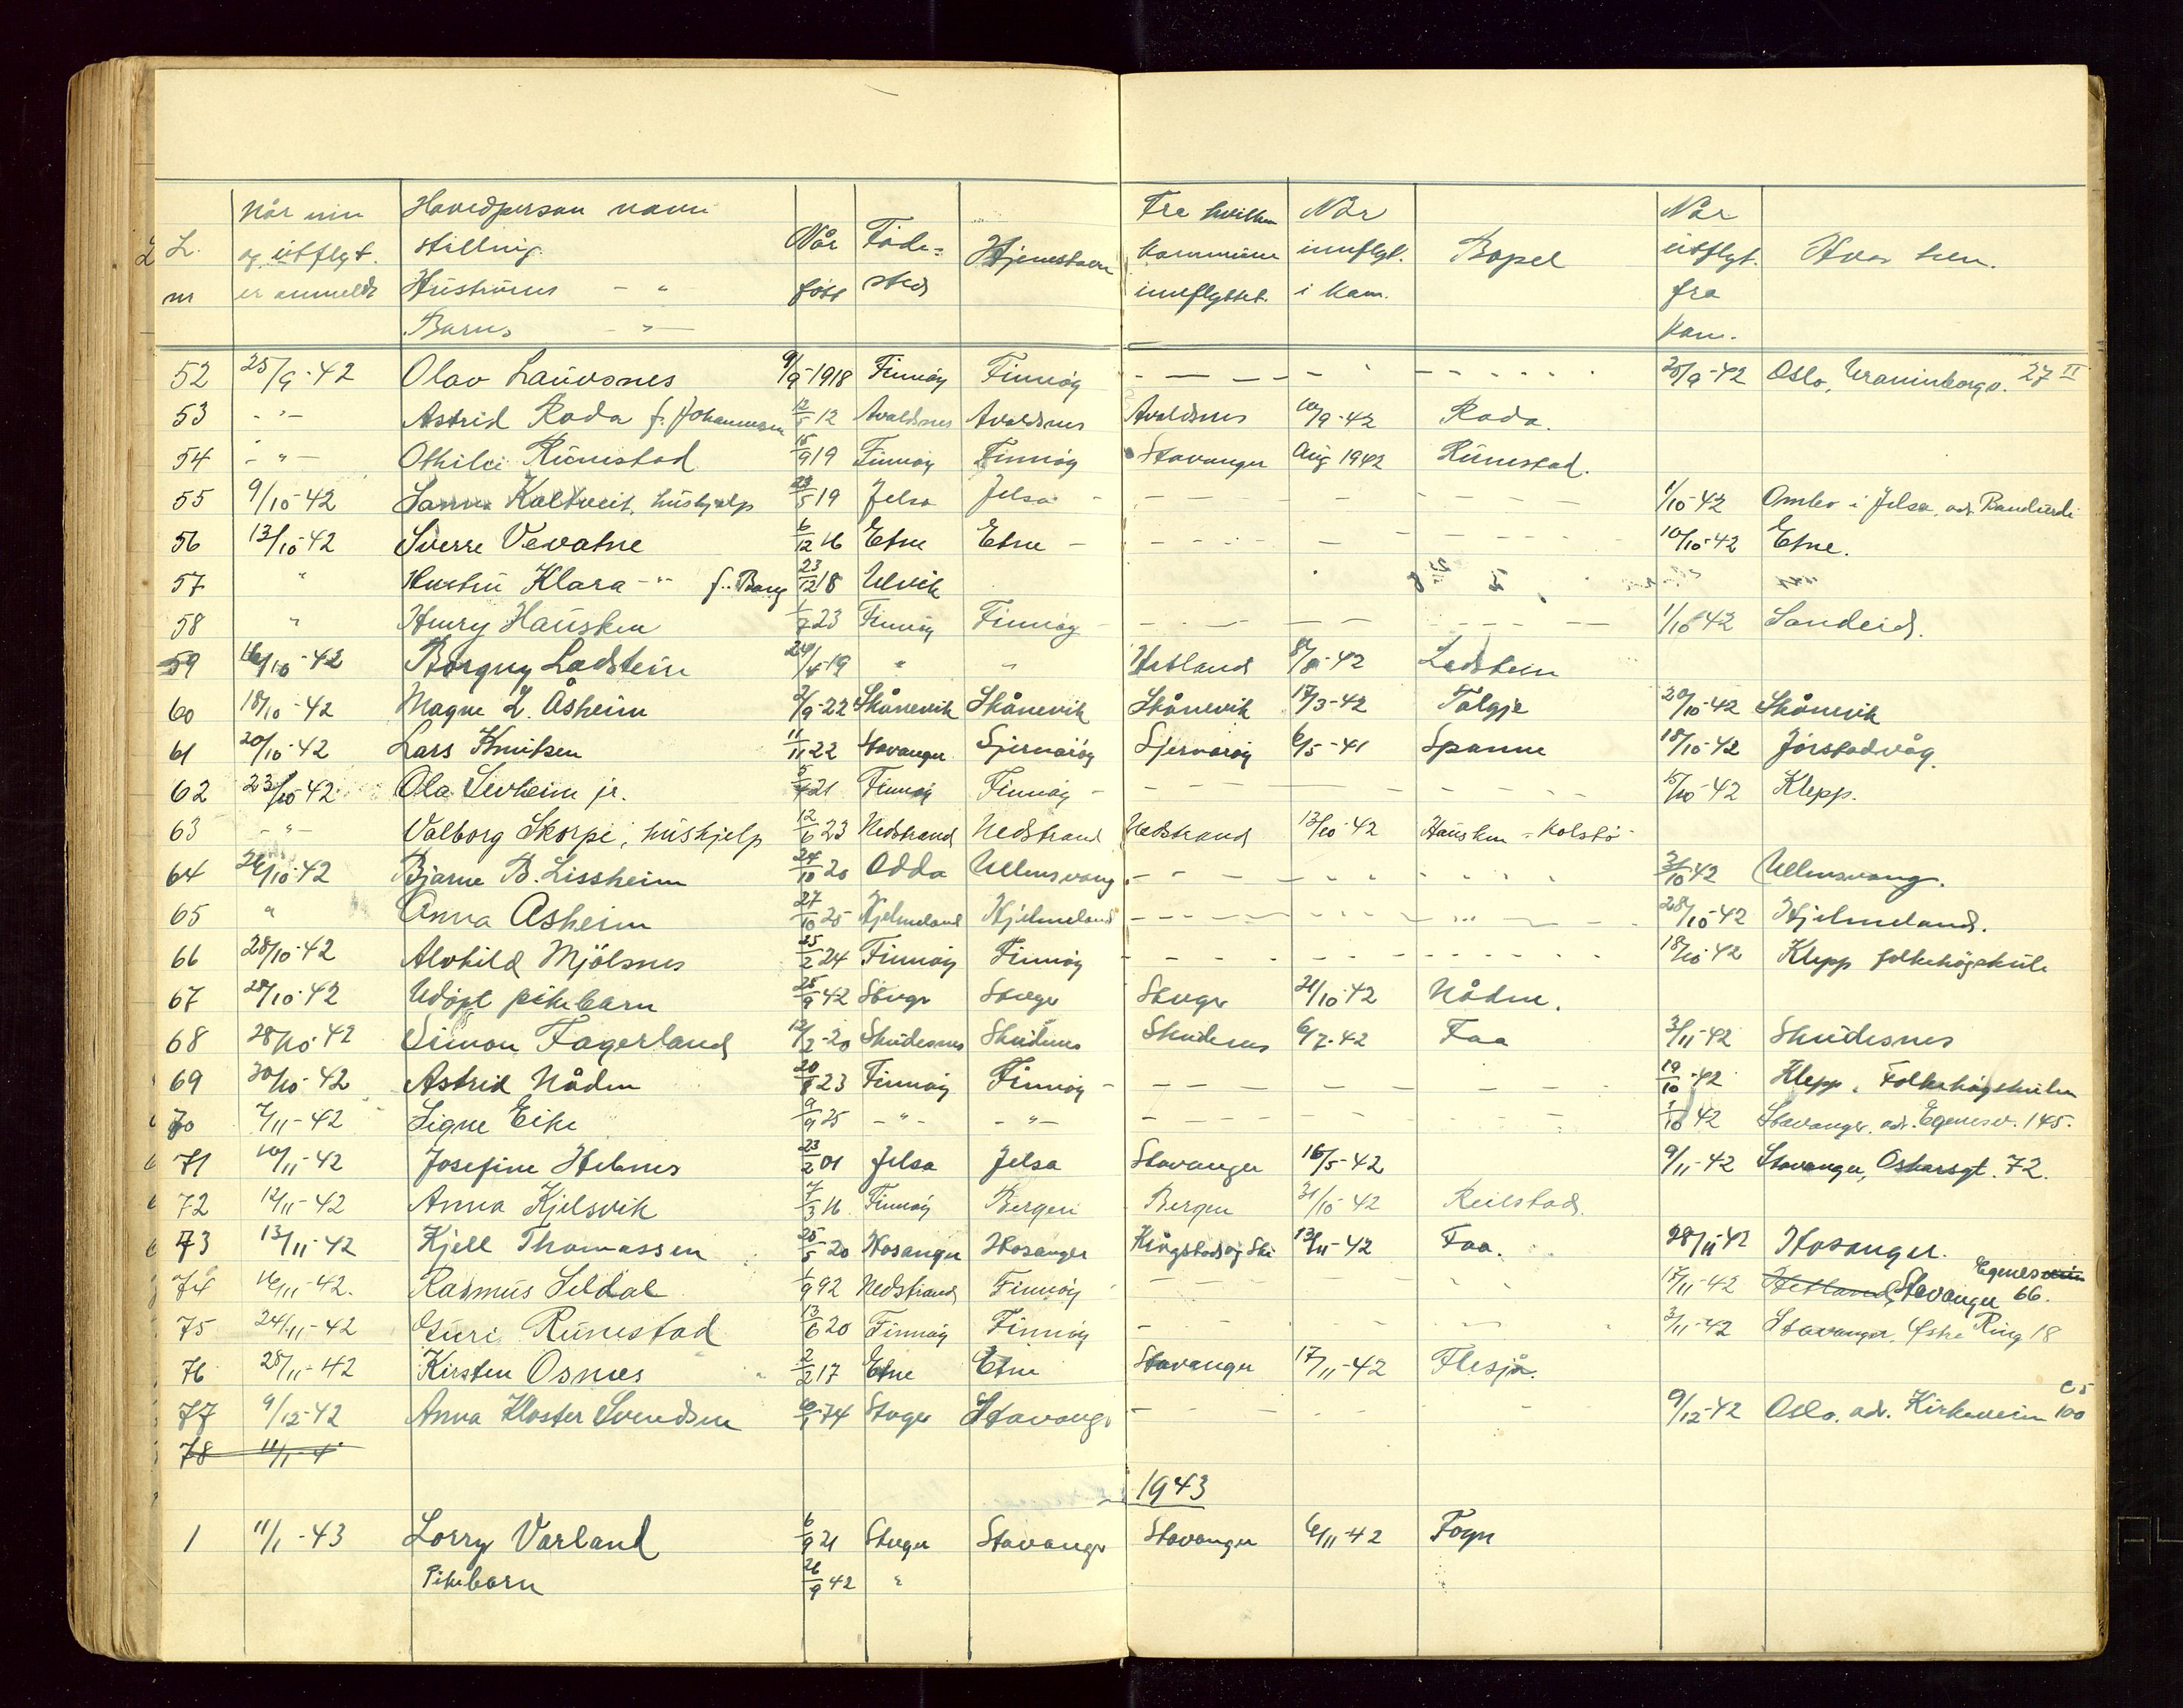 Når inn Hovedperson navn Fra hvilken Når Når
L. og utflyt. stilling Når Føde- Hjemstavn kommune innflyt. Bopel utflyt. Hvor hen.
nr er anmeldt Hustruens - " født sted innflyttet. i kom. fra
Barns - " - kom.
52 25/9-42 Olav Lauvsnes 9/9-1918 Finnøy Finnøy 20/9-42 Oslo, Uranienborgv. 27 II
53 - " - Astrid Roda f. Johannesen 12/5 12 Avaldsnes Avaldsnes Avaldsnes 10/9-42 Roda.
54 - " - Othilie Runestad 15/9 19 Finnøy Finnøy Stavanger Aug 1942 Runestad.
55 9/10-42 Kaltveit, hushjelp 23/5 19 Jelsa Jelsa 1/10-42 Ombo i Jelsa, adr.
56 13/10-42 Sverre Vevatne 6/12 16 Etne Etne 10/10-42 Etne.
57 " Hustru Klara - " f. Berg 23/12 18 Ulvik
58 " Henry Hausken 23 Finnøy Finnøy 1/10 42 Sandeid.
59 16/10-42 Borgny Ladstein 24/6-19 " " Hetland 8/8-42 Ladstein
60 18/10-42 Magne L. Åsheim 2/9-22 Skånevik Skånevik Skånevik 17/3-42 Talgje 20/10-42 Skånevik
61 20/10-42 Lars Knutsen 11/11 22 Stavanger Sjernarøy Sjernarøy 6/5-41 Spanne 18/10-42 Jørstadvåg.
62 23/10-42 Ola Sevheim jr. 21 Finnøy Finnøy 15/10-42 Klepp.
63 - " - Valborg Skorpe, hushjelp 12/6 23 Nedstrand Nedstrand Nedstrand 13/10-42 Hausken - Kolstø
64 26/10-42 Bjarne B. Lissheim 24/10 20 Odda Ullensvang 42 Ullensvang.
65 " Anna Åsheim 27/10 25 Hjelmeland Hjelmeland 28/10-42 Hjelmeland.
66 28/10-42 Alvhild Mjølsnes 25/2 24 Finnøy Finnøy 18/10-42 Klepp folkehøgskule
67 28/10-42 Udøpt pikebarn 25/9 42 Stvgr Stvgr Stvgr 21/10-42 Nåden.
68 28/10-42 Simon Fagerland 12/2-20 Skudesnes Skudenes Skudenes 6/7-42 Faa 3/11-42 Skudesnes
69 30/10-42 Astrid Nåden 20/8 23 Finnøy Finnøy 19/10-42 Klepp, Folkehøgskulen
70 7/11-42 Signe Eike 9/9 25 - " - - " - 1/10 42 Stavanger, adr. Egenesv. 145.
71 10/11-42 Josefine Hebnes 23/2 01 Jelsa Jelsa Stavanger 16/5-42 9/11-42 Stavanger, Oskarsgt. 72.
72 12/11-42 Anna Kjelsvik 7/3 16 Finnøy Bergen Bergen 31/10-42 Reilstad.
73 13/11-42 Kjell Thomassen 25/5 20 Hosanger Hosanger 13/11-42 Faa. 28/11-42 Hosanger.
74 16/11-42. Rasmus Seldal 1/9 92 Nedstrand Finnøy 17/11-42 Hetland, Stavanger Egenesvein 66.
75 24/11-42 Guri Runestad 13/6 20 Finnøy Finnøy 3/11-42 Stavanger, Østre Ring 18
76 28/11-42 Kirsten Osnes 2/2 17 Etne Etne Stavanger 17/11-42 Flesjå.
77 9/12-42 Anna Kloster Svendsen 74 Stvgr Stavangr 9/12-42 Oslo, adr. Kirkeveien 100
78 11/1-4
1943
1 11/1-43 Lorry Varland 6/9 21 Stvgr Stavangr Stavanger 6/11-42 Fogn
Pikebarn 26/9 42 "